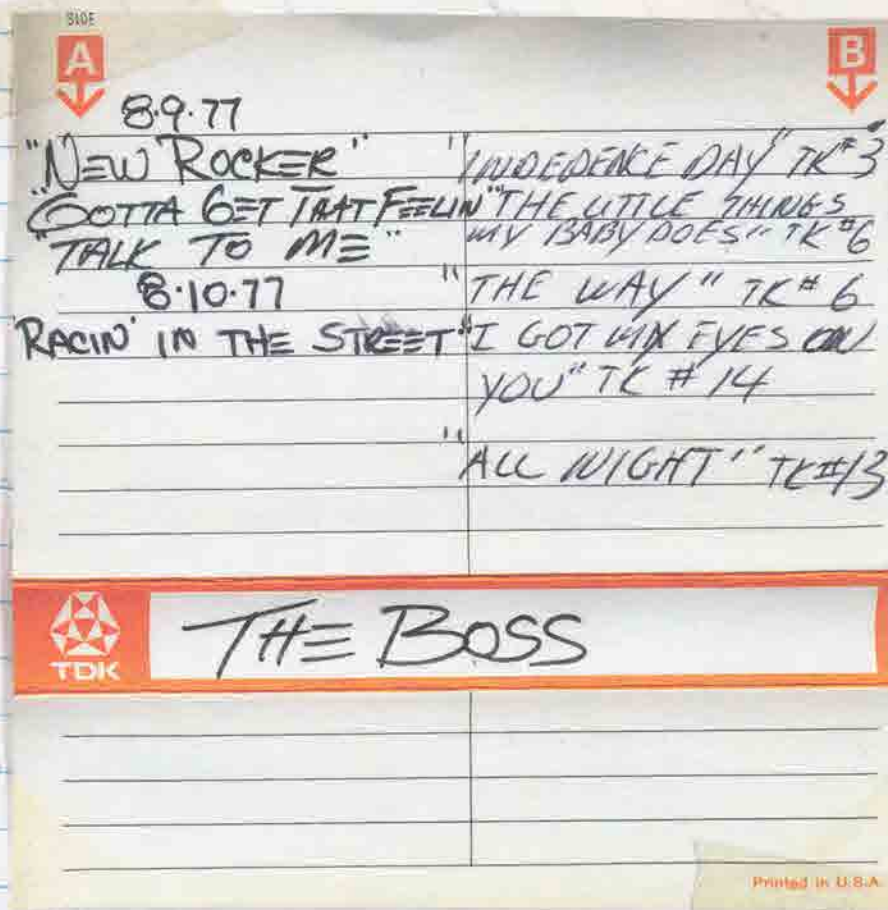 SIDE
A
B
8·9·77
"NEW ROCKER"
"GOTTA GET THAT FEELIN"
"TALK TO ME"
8·10·77
"RACIN' IN THE STREET"
"INDEDENCE DAY" TK#3
"THE LITTLE THINGS
MY BABY DOES" TK #6
"THE WAY" TK # 6
"I GOT MY EYES ON
YOU" TK # 14
"ALL NIGHT" TK#13
TDK
THE BOSS
Printed in U.S.A.